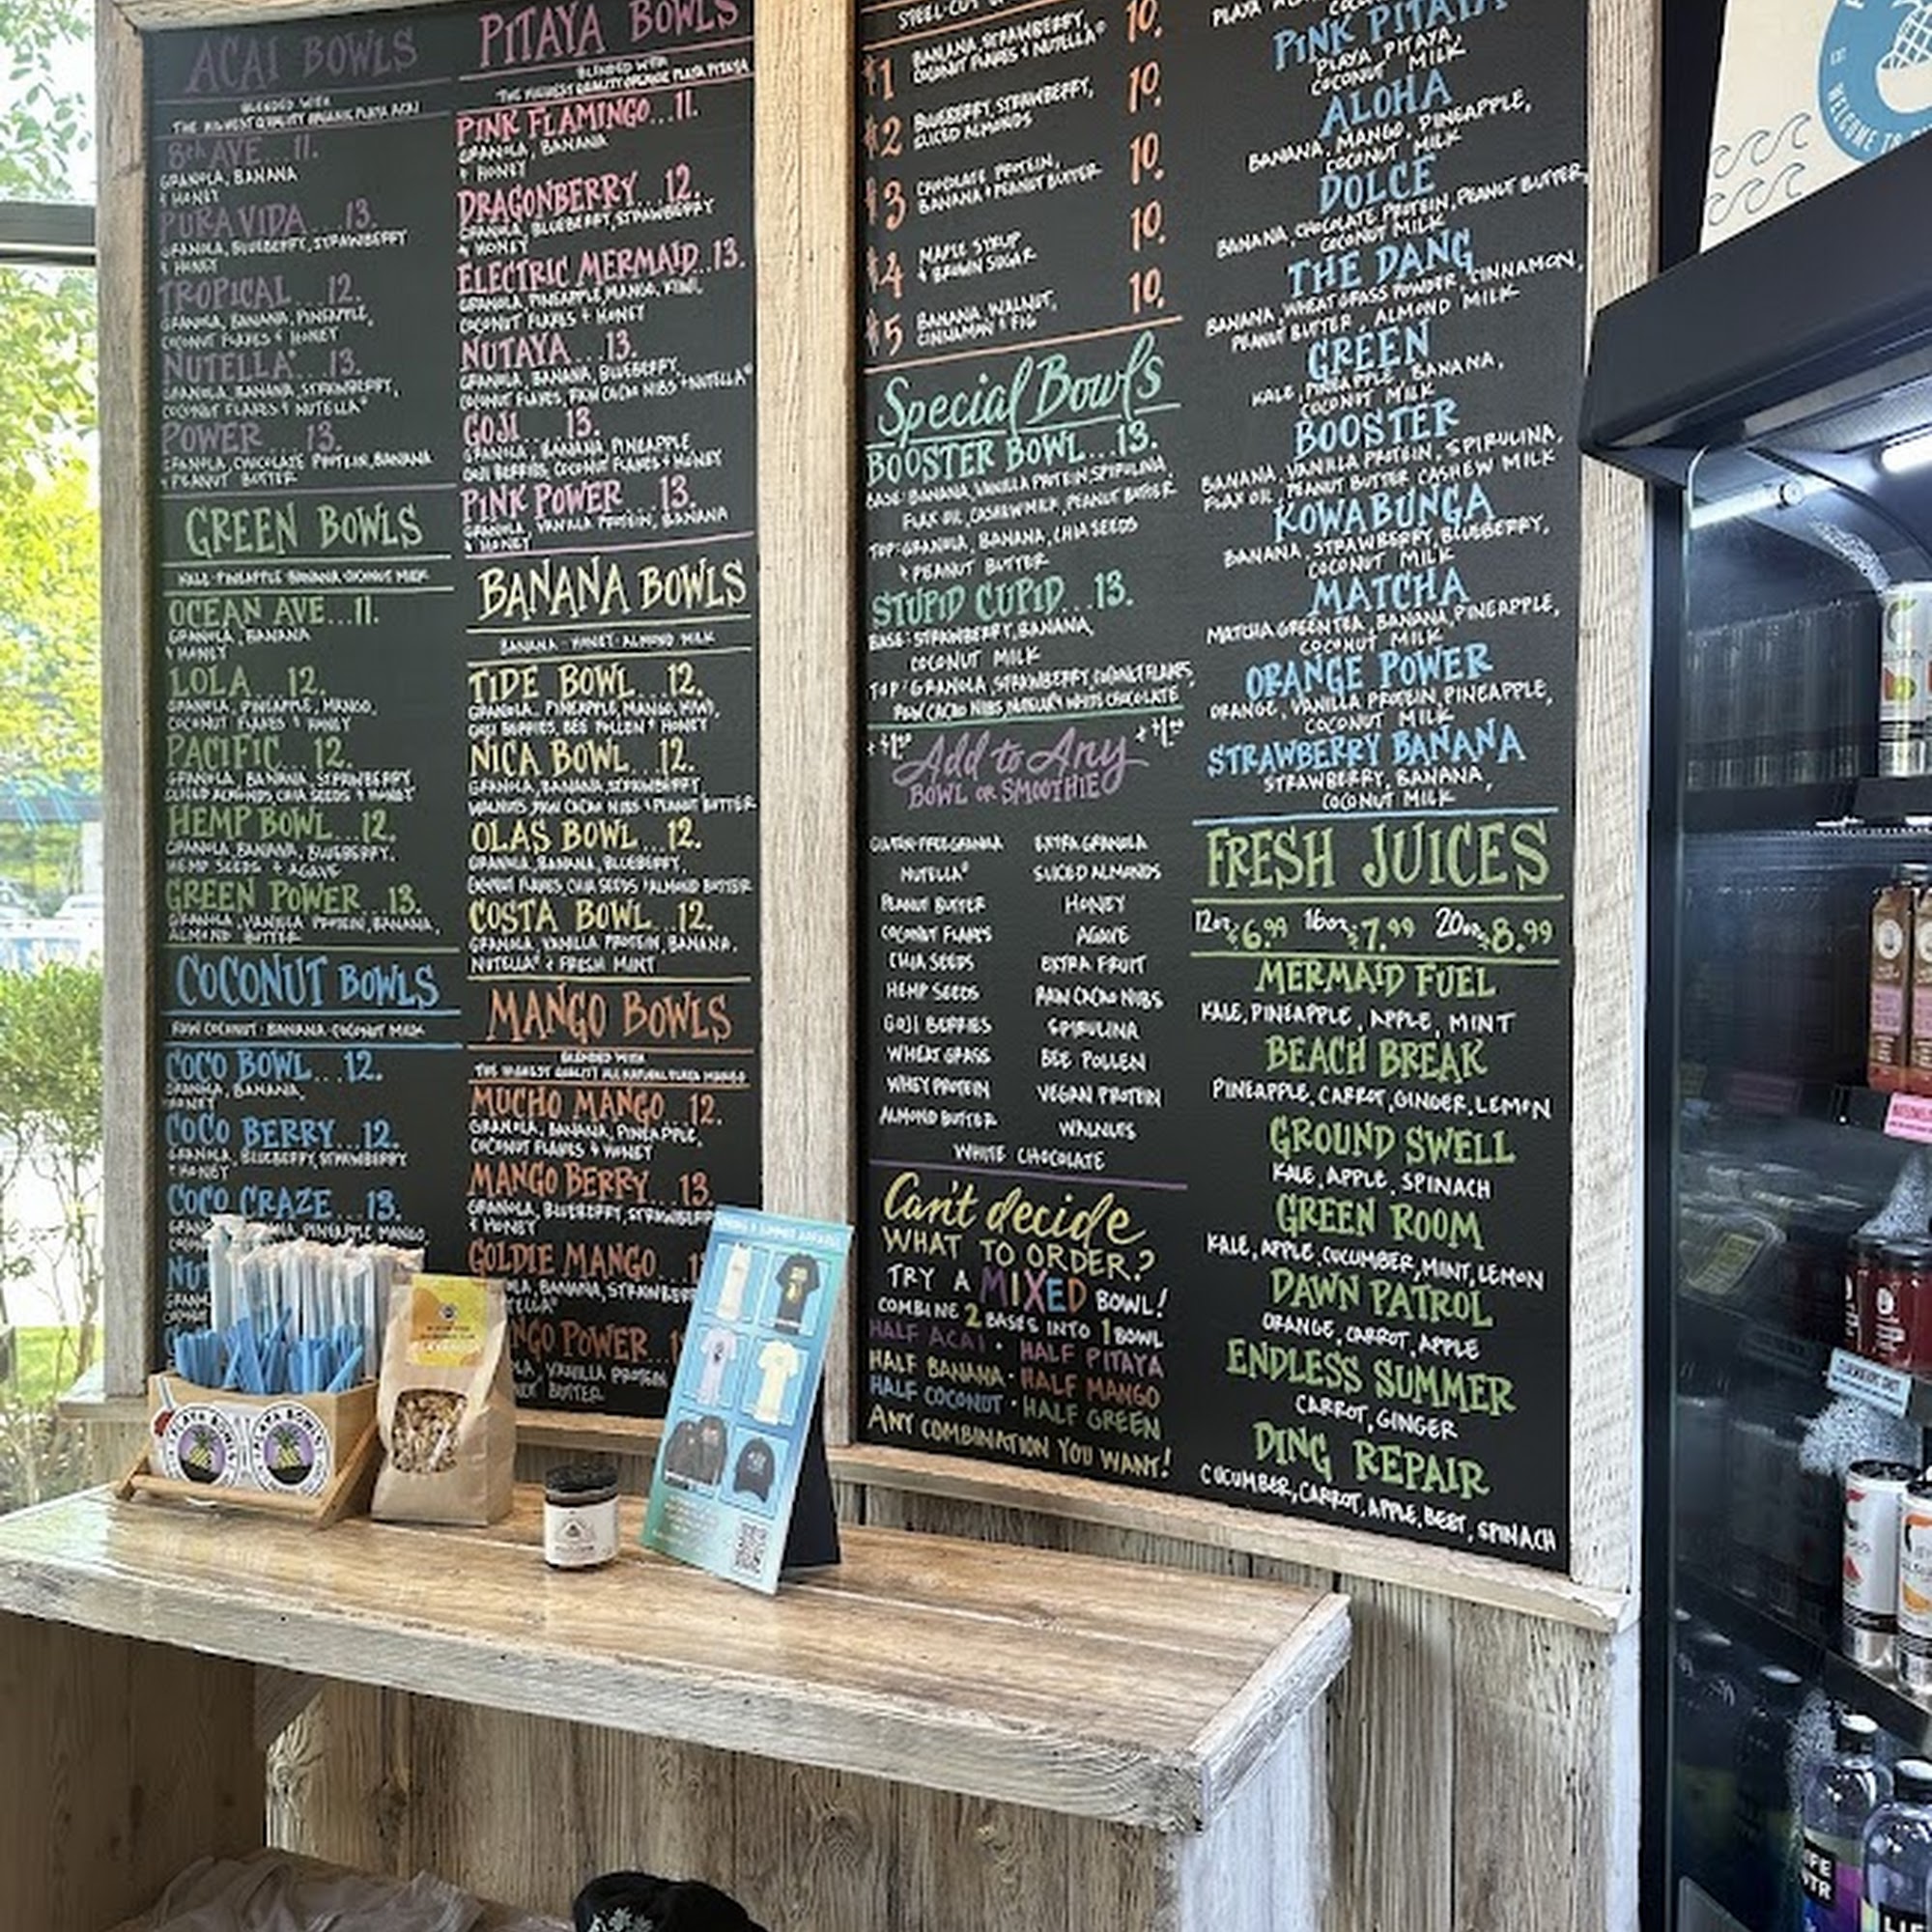 ACAI BOWLS
BLENDED WITH
THE HIGHEST QUALITY ORGANIC PLAYA ACAI
8th AVE...11.
GRANOLA, BANANA
& HONEY
PURA VIDA...13.
GRANOLA, BLUEBERRY, STRAWBERRY
& HONEY
TROPICAL...12.
GRANOLA, BANANA, PINEAPPLE,
COCONUT FLAKES & HONEY
NUTELLA®...13.
GRANOLA, BANANA, STRAWBERRY,
COCONUT FLAKES & NUTELLA®
POWER...13.
GRANOLA, CHOCOLATE PROTEIN, BANANA
& PEANUT BUTTER
GREEN BOWLS
KALE·PINEAPPLE·BANANA·COCONUT MILK
OCEAN AVE...11.
GRANOLA, BANANA
& HONEY
LOLA...12.
GRANOLA, PINEAPPLE, MANGO,
COCONUT FLAKES & HONEY
PACIFIC...12.
GRANOLA, BANANA, STRAWBERRY
SLICED ALMONDS, CHIA SEEDS & HONEY
HEMP BOWL...12.
GRANOLA, BANANA, BLUEBERRY,
HEMP SEEDS & AGAVE
GREEN POWER...13.
GRANOLA, VANILLA PROTEIN, BANANA,
ALMOND BUTTER
COCONUT BOWLS
RAW COCONUT·BANANA·COCONUT MILK
COCO BOWL...12.
GRANOLA, BANANA,
HONEY
COCO BERRY...12.
GRANOLA, BLUEBERRY, STRAWBERRY
& HONEY
COCO CRAZE...13.
PINEAPPLE, MANGO,
PITAYA BOWLS
BLENDED WITH
THE HIGHEST QUALITY ORGANIC PLAYA PITAYA
PINK FLAMINGO...11.
GRANOLA, BANANA
& HONEY
DRAGONBERRY...12.
GRANOLA, BLUEBERRY, STRAWBERRY
& HONEY
ELECTRIC MERMAID..13.
GRANOLA, PINEAPPLE, MANGO, KIWI,
COCONUT FLAKES & HONEY
NUTAYA...13.
GRANOLA, BANANA, BLUEBERRY,
COCONUT FLAKES, RAW CACAO NIBS & NUTELLA®
GOJI...13.
GRANOLA, BANANA, PINEAPPLE
GOJI BERRIES, COCONUT FLAKES & HONEY
PINK POWER...13.
GRANOLA, VANILLA PROTEIN, BANANA
& HONEY
BANANA BOWLS
BANANA·HONEY·ALMOND MILK
TIDE BOWL...12.
GRANOLA, PINEAPPLE, MANGO, KIWI,
GOJI BERRIES, BEE POLLEN & HONEY
NICA BOWL...12.
GRANOLA, BANANA, STRAWBERRY,
WALNUTS, RAW CACAO NIBS & PEANUT BUTTER
OLAS BOWL...12.
GRANOLA, BANANA, BLUEBERRY,
COCONUT FLAKES, CHIA SEEDS & ALMOND BUTTER
COSTA BOWL...12.
GRANOLA, VANILLA PROTEIN, BANANA,
NUTELLA® & FRESH MINT
MANGO BOWLS
BLENDED WITH
THE HIGHEST QUALITY ALL NATURAL PLAYA MANGO
MUCHO MANGO...12.
GRANOLA, BANANA, PINEAPPLE,
COCONUT FLAKES & HONEY
MANGO BERRY...13.
GRANOLA, BLUEBERRY, STRAWBERRY
& HONEY
GOLDIE MANGO...
BANANA, STRAWBERRY
POWER...
VANILLA PROTEIN
BUTTER
STEEL-CUT
#1 BANANA, STRAWBERRY, 10.
COCONUT FLAKES & NUTELLA®
#2 BLUEBERRY, STRAWBERRY, 10.
SLICED ALMONDS
#3 CHOCOLATE PROTEIN, 10.
BANANA & PEANUT BUTTER
#4 MAPLE SYRUP 10.
& BROWN SUGAR
#5 BANANA, WALNUT, 10.
CINNAMON & FIG
Special Bowls
BOOSTER BOWL...13.
BASE: BANANA, VANILLA PROTEIN, SPIRULINA,
FLAX OIL, CASHEW MILK, PEANUT BUTTER
TOP: GRANOLA, BANANA, CHIA SEEDS
& PEANUT BUTTER
STUPID CUPID...13.
BASE: STRAWBERRY, BANANA,
COCONUT MILK
TOP: GRANOLA, STRAWBERRY, COCONUT FLAKES,
RAW CACAO NIBS, NUTELLA® & WHITE CHOCOLATE
+$1.00 Add to Any +$1.00
BOWL OR SMOOTHIE
GLUTEN-FREE GRANOLA EXTRA GRANOLA
NUTELLA® SLICED ALMONDS
PEANUT BUTTER HONEY
COCONUT FLAKES AGAVE
CHIA SEEDS EXTRA FRUIT
HEMP SEEDS RAW CACAO NIBS
GOJI BERRIES SPIRULINA
WHEAT GRASS BEE POLLEN
WHEY PROTEIN VEGAN PROTEIN
ALMOND BUTTER WALNUTS
WHITE CHOCOLATE
Can't decide
WHAT TO ORDER?
TRY A MIXED BOWL!
COMBINE 2 BASES INTO 1 BOWL
HALF ACAI · HALF PITAYA
HALF BANANA · HALF MANGO
HALF COCONUT · HALF GREEN
ANY COMBINATION YOU WANT!
PINK PITAYA
PLAYA PITAYA,
COCONUT MILK
ALOHA
BANANA, MANGO, PINEAPPLE,
COCONUT MILK
DOLCE
BANANA, CHOCOLATE PROTEIN, PEANUT BUTTER,
COCONUT MILK
THE DANG
BANANA, WHEAT GRASS POWDER, CINNAMON,
PEANUT BUTTER, ALMOND MILK
GREEN
KALE, PINEAPPLE, BANANA,
COCONUT MILK
BOOSTER
BANANA, VANILLA PROTEIN, SPIRULINA,
FLAX OIL, PEANUT BUTTER CASHEW MILK
KOWABUNGA
BANANA, STRAWBERRY, BLUEBERRY,
COCONUT MILK
MATCHA
MATCHA GREEN TEA, BANANA, PINEAPPLE,
COCONUT MILK
ORANGE POWER
ORANGE, VANILLA PROTEIN, PINEAPPLE,
COCONUT MILK
STRAWBERRY BANANA
STRAWBERRY, BANANA,
COCONUT MILK
FRESH JUICES
12oz $6.99 16oz $7.99 20oz $8.99
MERMAID FUEL
KALE, PINEAPPLE, APPLE, MINT
BEACH BREAK
PINEAPPLE, CARROT, GINGER, LEMON
GROUND SWELL
KALE, APPLE, SPINACH
GREEN ROOM
KALE, APPLE, CUCUMBER, MINT, LEMON
DAWN PATROL
ORANGE, CARROT, APPLE
ENDLESS SUMMER
CARROT, GINGER
DING REPAIR
CUCUMBER, CARROT, APPLE, BEET, SPINACH
WELCOME TO
PLAYA BOWLS
PLAYA BOWLS